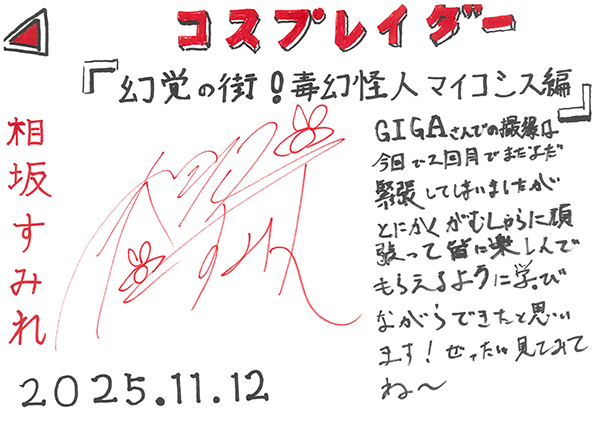 コスプレイダー
『幻覚の街！毒幻怪人マイコシス編』
相坂すみれ
GIGAさんでの撮影は
今回で2回目でまだまだ
緊張してしまいましたが
とにかくがむしゃらに頑
張って皆に楽しんで
もらえるように学び
ながらできたと思い
ます！ぜったい見てみて
ね〜
2025.11.12